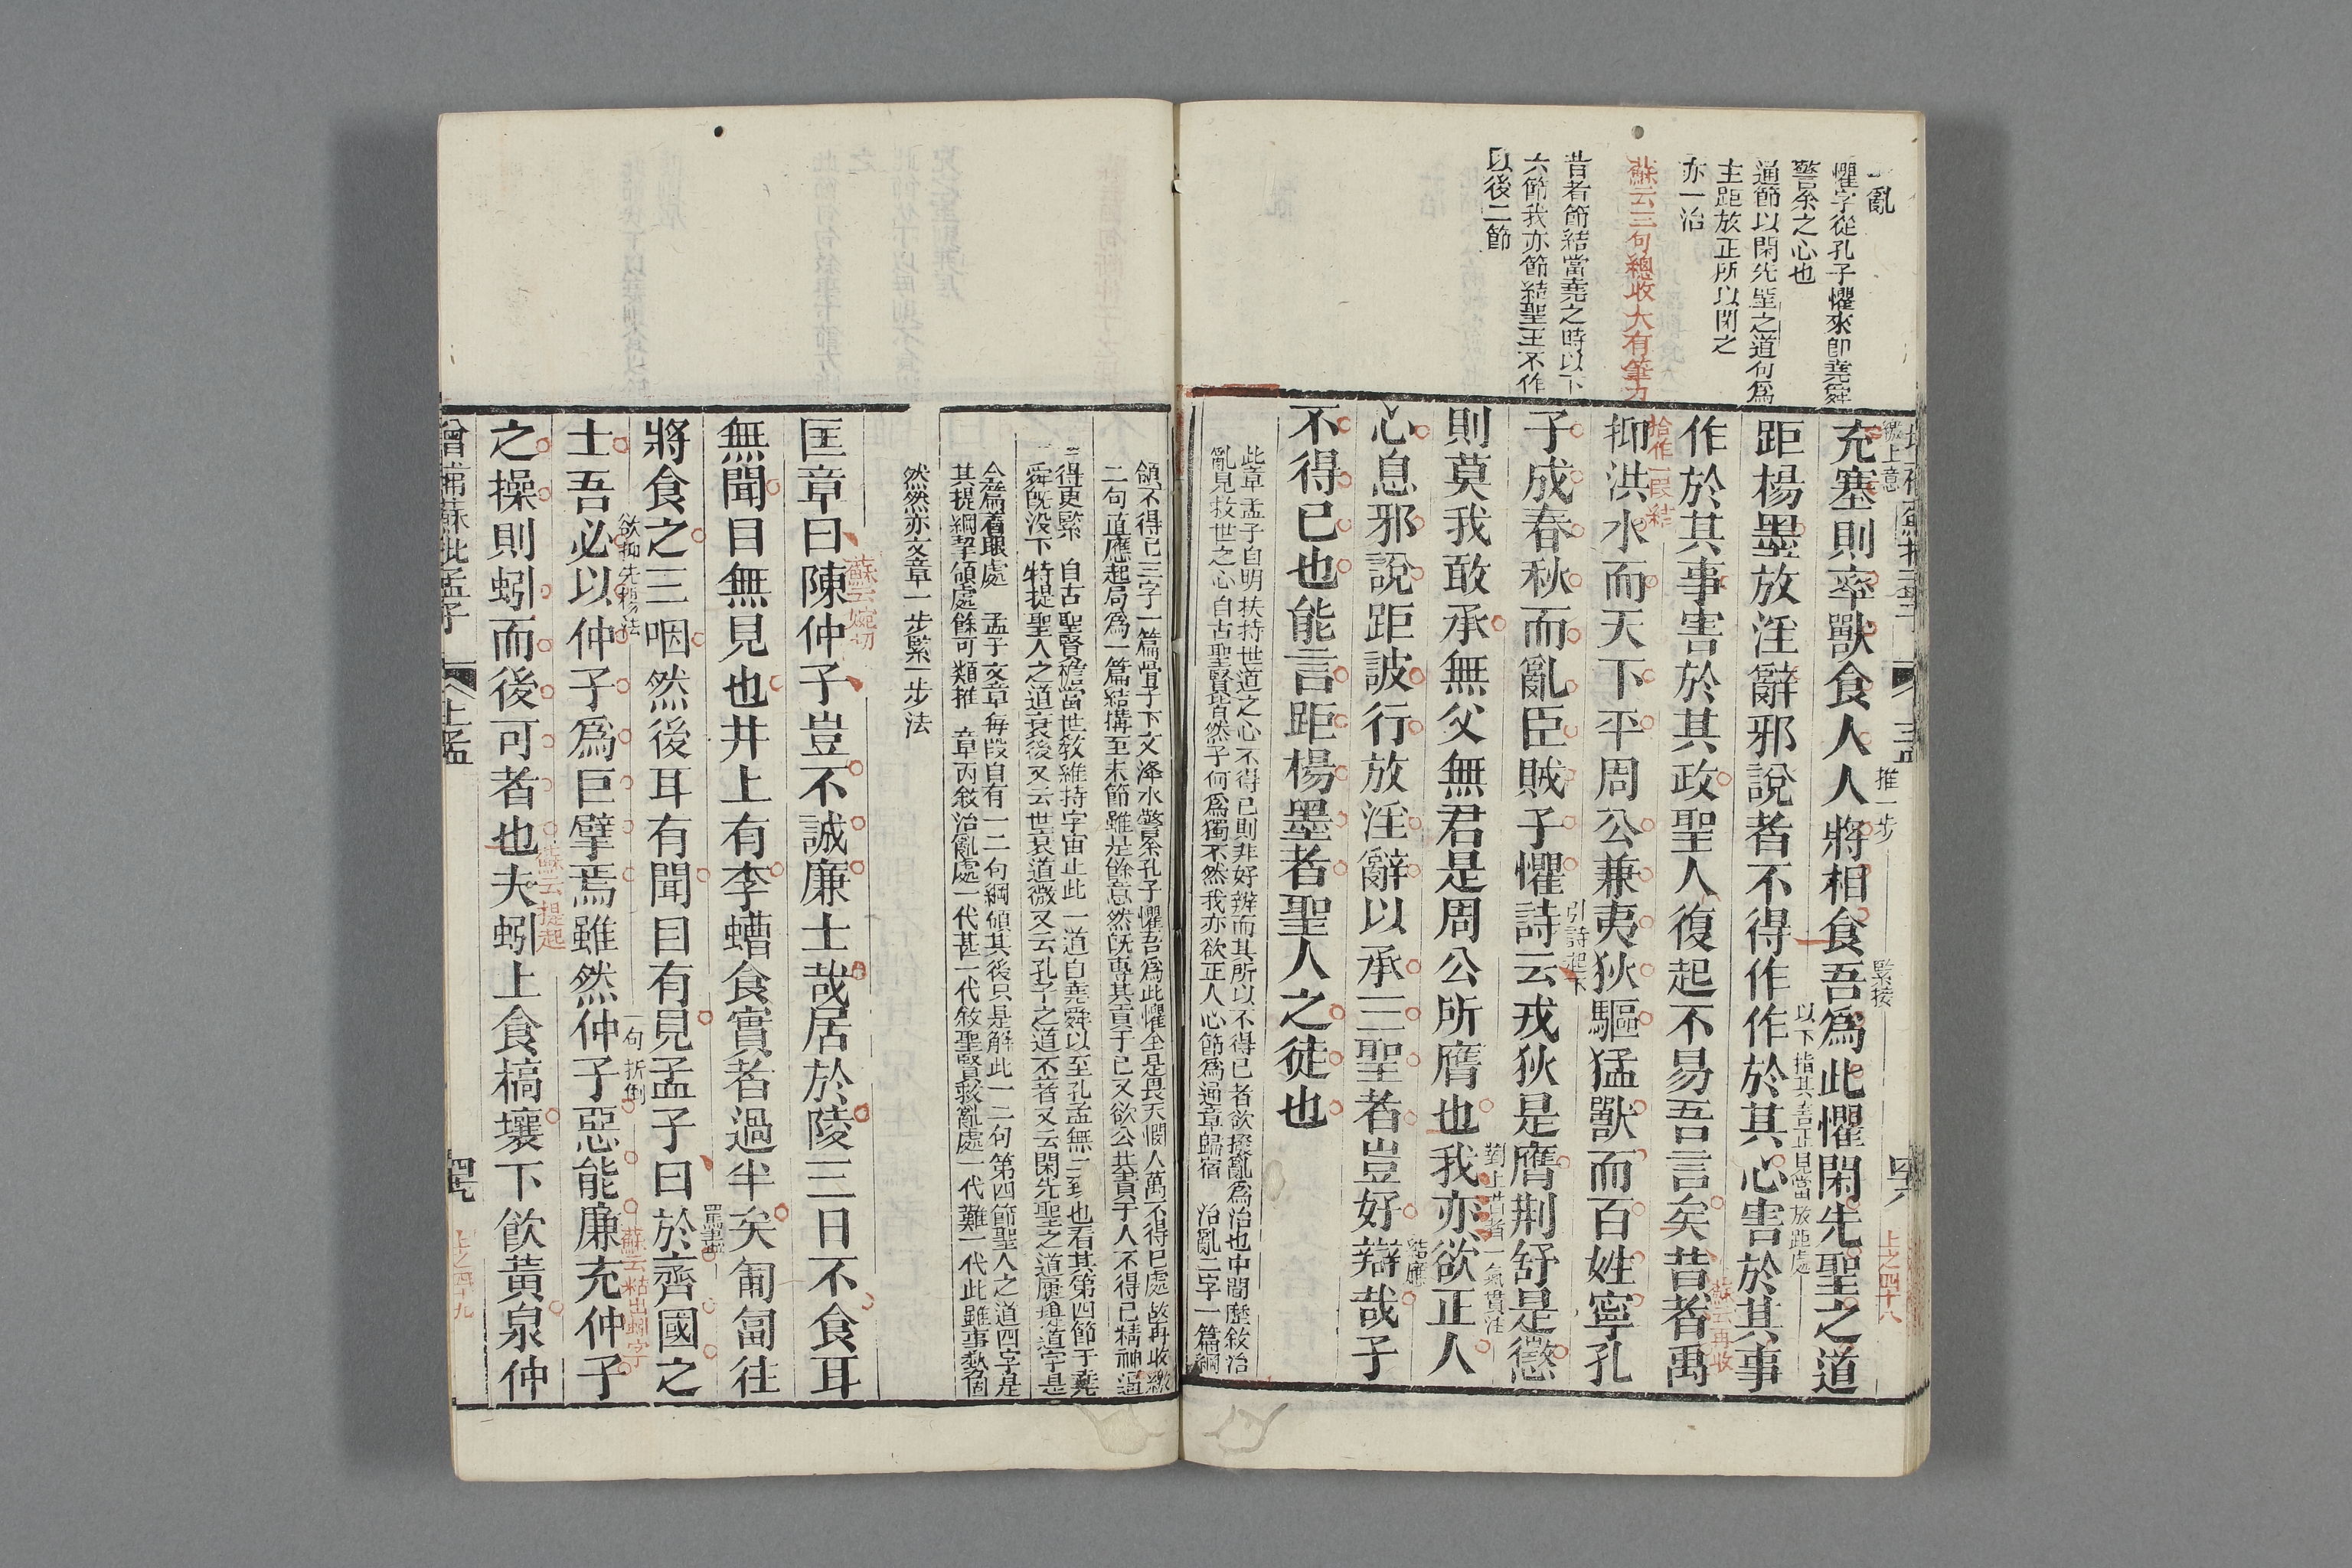 亂
懼字從孔子懼來即堯舜
警余之心也
通節以閑先聖之道句爲
主距放正所以閑之
亦一治
蘇云三句總收大有筆力
昔者節結當堯之時以下
六節我亦節結聖王不作
以後二節
上孟
四八
上之四十八
繳上意
推一步
緊接
充塞則率獸食人人將相食吾爲此懼閑先聖之道
以下指其言正見當放距處
距楊墨放淫辭邪說者不得作作於其心害於其事
蘇云再收
作於其事害於其政聖人復起不易吾言矣昔者禹
拾作一段結
抑洪水而天下平周公兼夷狄驅猛獸而百姓寧孔
引詩起下
子成春秋而亂臣賊子懼詩云戎狄是膺荆舒是懲
對上昔者一氣貫注
則莫我敢承無父無君是周公所膺也我亦欲正人
結應
心息邪說距詖行放淫辭以承三聖者豈好辯哉子
不得已也能言距楊墨者聖人之徒也
此章孟子自明扶持世道之心不得已則非好辨而其所以不得已者欲撥亂爲治也中間歷敘治
亂見救世之心自古聖賢皆然予何爲獨不然我亦欲正人心節爲通章歸宿 治亂二字一篇綱
領不得已三字一篇骨子下文洚水警余孔子懼吾爲此懼全是畏天憫人萬不得已處故再收繳
二句直應起局爲一篇結搆至末節雖是餘意然既專其責于己又欲公其責于人不得已精神逼
得更緊 自古聖賢擔當世教維持宇宙止此一道自堯舜以至孔孟無二致也看其第四節于堯
舜既没下特提聖人之道衰後又云世衰道微又云孔子之道不著又云閑先聖之道屢提道字是
全篇着眼處 孟子文章每段自有一二句綱領其後只是解此一二句第四節聖人之道四字是
其提綱挈領處餘可類推 章內敘治亂處一代甚一代敘聖賢救亂處一代難一代此雖事勢固
然然亦文章一步緊一步法
蘇云婉切
匡章曰陳仲子豈不誠廉士哉居於陵三日不食耳
無聞目無見也井上有李螬食實者過半矣匍匐往
將食之三咽然後耳有聞目有見孟子曰於齊國之
欲抑先揚法
一句折倒
蘇云粘出蚓字
士吾必以仲子爲巨擘焉雖然仲子惡能廉充仲子
蘇云提起
之操則蚓而後可者也夫蚓上食槁壤下飲黃泉仲
增補蘇批孟子
上孟
四九
上之四十九